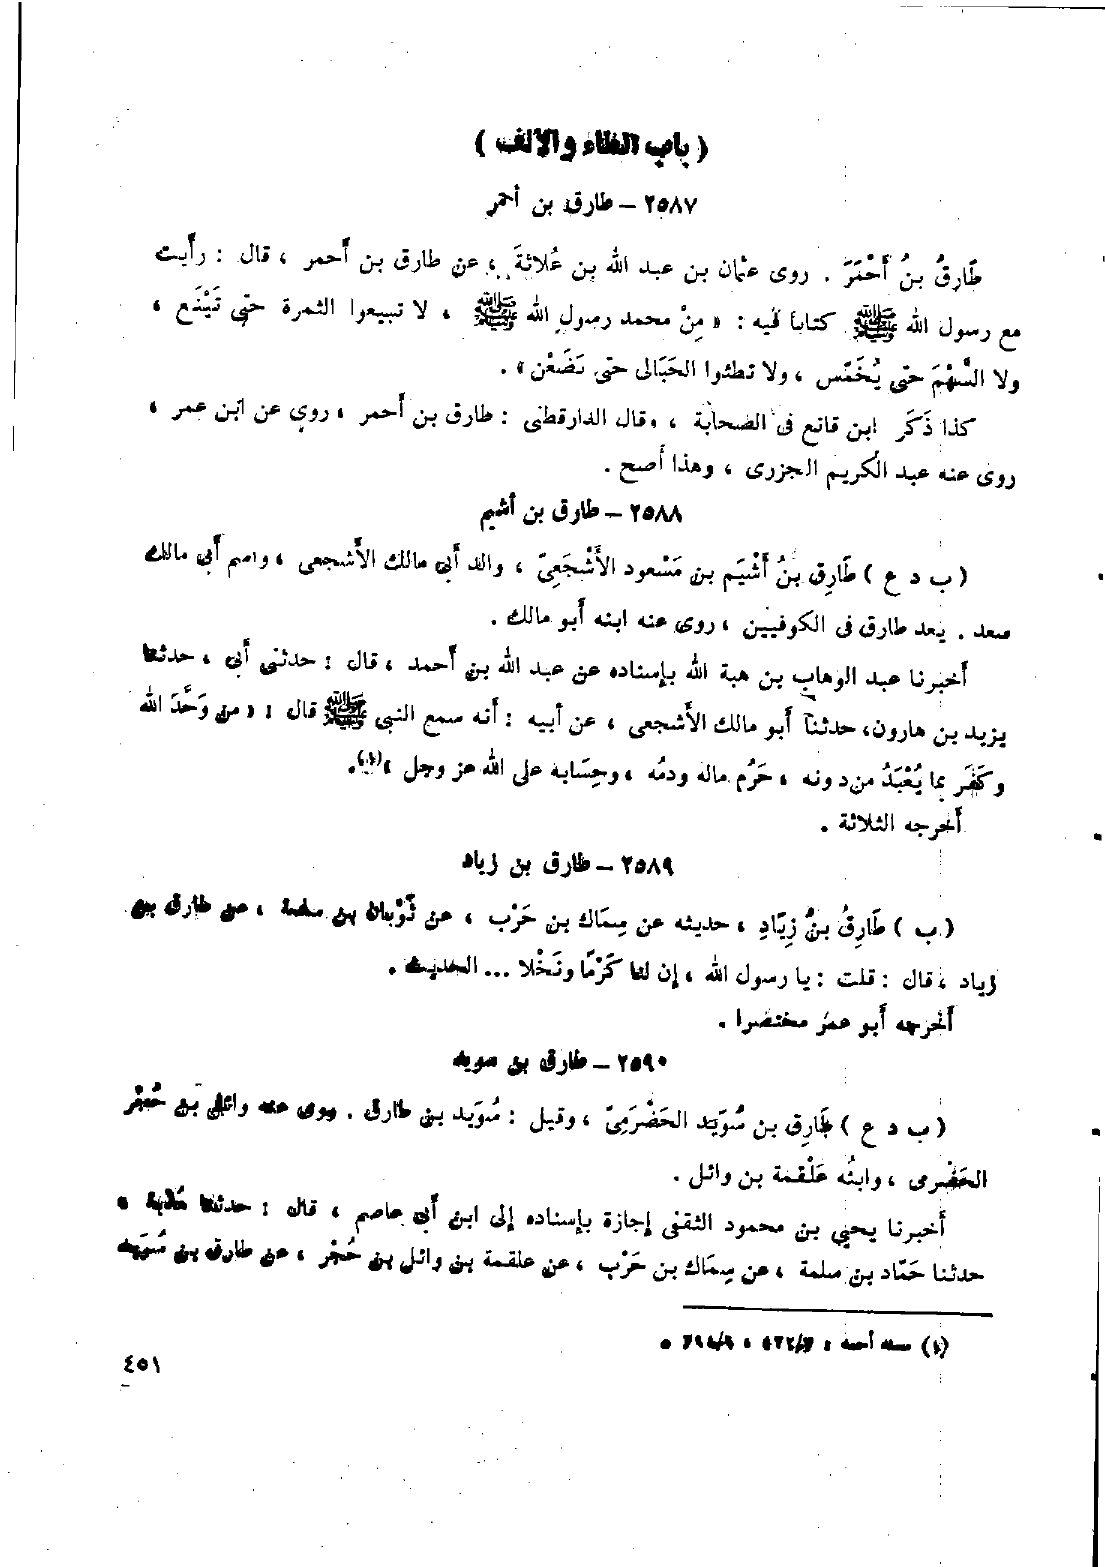 ( باب الطاء والألف )
٢٥٨٧ – طارق بن أحمر
طَارِقُ بنُ أَحْمَرَ . روى عثمان بن عبد الله بن عُلاثةَ ، عن طارق بن أحمر ، قال : رأيت
مع رسول الله ﷺ كتاباً فيه : « مِنْ محمد رسولِ الله ﷺ ، لا تبيعوا الثمرة حتى تَيْنَع ،
ولا السَّهْمَ حتى يُخَمَّس ، ولا تطئوا الحَبَالى حتى تَضَعْن » .
كذا ذَكَر ابن قانع فى الصحابة ، وقال الدارقطنى : طارق بن أحمر ، روى عن ابن عمر ،
روى عنه عبد الكريم الجزرى ، وهذا أصح .
٢٥٨٨ – طارق بن أشيم
( ب د ع ) طَارِق بنُ أَشْيَم بن مَسْعود الأَشْجَعِىّ ، والد أبى مالك الأشجعى ، واسم أبى مالك
سعد . يعد طارق فى الكوفيين ، روى عنه ابنه أبو مالك .
أخبرنا عبد الوهاب بن هبة الله بإسناده عن عبد الله بن أحمد ، قال : حدثنى أبى ، حدثنا
يزيد بن هارون، حدثنا أبو مالك الأشجعى ، عن أبيه : أنه سمع النبى ﷺ قال : « من وَحَّدَ الله
وكَفَر بما يُعْبَدُ من دونه ، حَرُم ماله ودمُه ، وحِسَابه على الله عز وجل »(١).
أخرجه الثلاثة .
٢٥٨٩ – طارق بن زياد
( ب ) طَارِقُ بنُ زِيَادِ ، حديثه عن سِمَاك بن حَرْب ، عن ثَوْبان بن سلمة ، عن طارق بن
زياد ، قال : قلت : يا رسول الله ، إن لنا كَرْمًا ونَخْلا ... الحديث .
أخرجه أبو عمر مختصرا .
٢٥٩٠ – طارق بن سويد
( ب د ع ) طَارِق بن سُوَيد الحَضْرَمِىّ ، وقيل : سُوَيد بن طارق . روى عنه وائل بن حُجْر
الحَضْرمى ، وابنُه عَلْقمة بن وائل .
أخبرنا يحيى بن محمود الثقفى إجازة بإسناده إلى ابن أبى عاصم ، قال : حدثنا هُدْبة ،
حدثنا حَمّاد بن سلمة ، عن سِمَاك بن حَرْب ، عن علقمة بن وائل بن حُجْر ، عن طارق بن سُوَيد
(١) مسند أحمد :
٤٥١